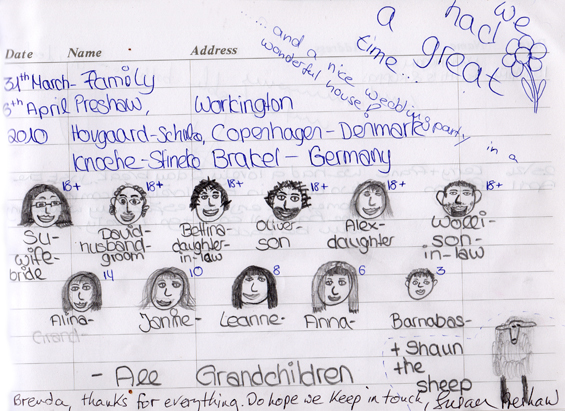 we
had
a great
time...
...and a nice wedding party in a
wonderful house!
Date Name Address
31th March- Family
5th April Preshaw, Workington
2010 Hovgaard- Copenhagen - Denmark
Brakel - Germany
18+ 18+ 18+ 18+ 18+ 18+
Su-
wife-
bride
David-
husband-
groom
Bettina-
daughter-
in-law
Oliver
son
Alex-
daughter
Wolli-
son-
in-law
14 10 8 6 3
Alina- Janine- Leanne- Anna- Barnabas-
Grand-
- All Grandchildren
+ Shaun
the
sheep
Brenda, thanks for everything. Do hope we keep in touch, Susan Preshaw